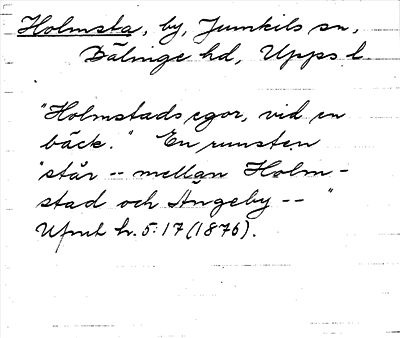 Holmsta, by, Jumkils sn,
Bälinge hd, Upps l.
"Holmstads egor, vid en
bäck." En runsten
"står -- mellan Holm-
stad och Ängeby -- "
Ufmt h. 5:17 (1876).